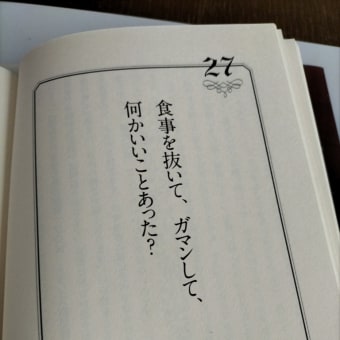 27
食事を抜いて、ガマンして、
何かいいことあった?